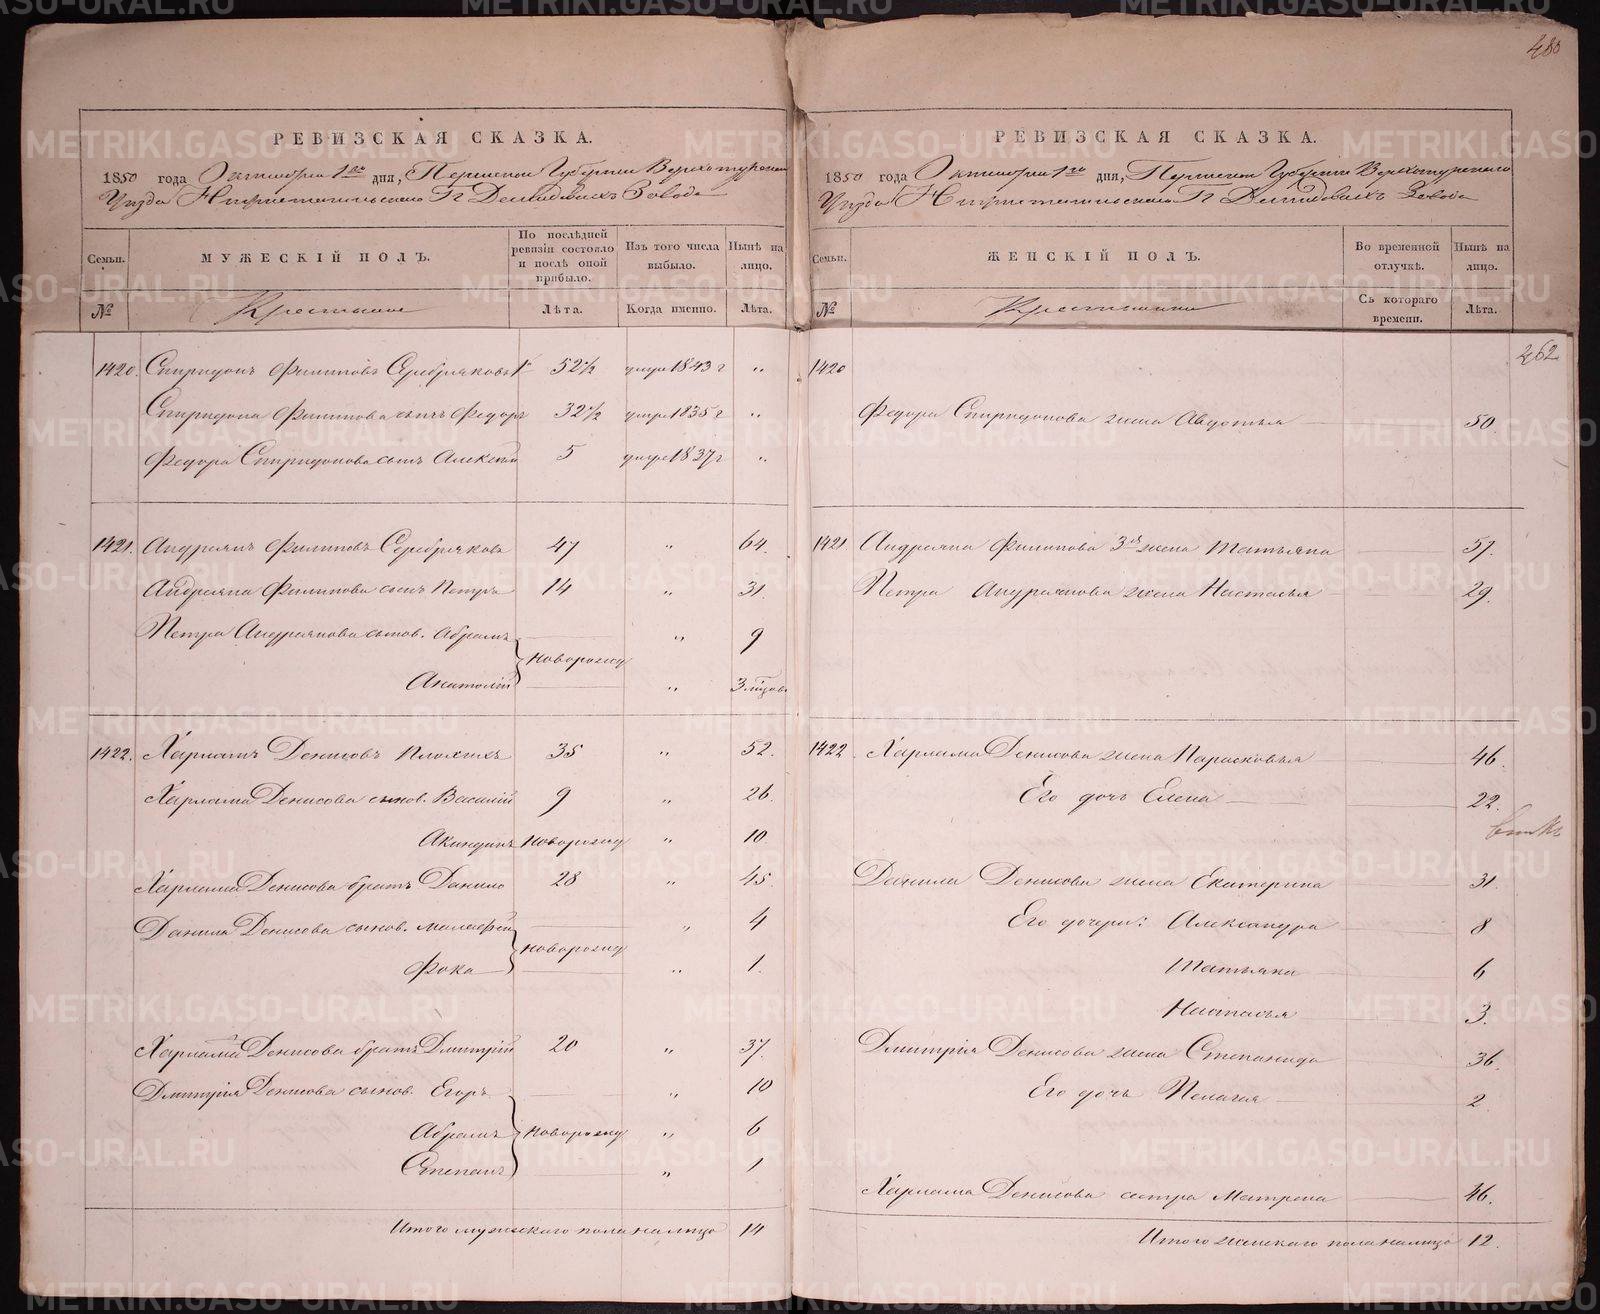 480
РЕВИЗСКАЯ СКАЗКА.
1850 года Октября 1го дня, Пермской Губернии Верхотурскаго
Уезда Нижнетагильскаго Гг Демидовыхъ Завода
Семьи. МУЖЕСКІЙ ПОЛЪ. По послѣдней ревизіи состояло и послѣ оной прибыло. Изъ того числа выбыло. Нынѣ на лицо.
№ Крестьяне Лѣта. Когда именно. Лѣта.
1420. Спиридонъ Филиповъ Серебряковъ 52 1/2 умре 1843 г "
Спиридона Филипова сынъ Федоръ 32 1/2 умре 1835 г "
Федора Спиридонова сынъ Алексей 5 умре 1837 г "
1421. Андреянъ Филиповъ Серебряковъ 47 " 64.
Андреяна Филипова сынъ Петръ 14 " 31.
Петра Андреянова сынов. Абрамъ " 9
новорожд
Анатолій " 3 мѣсяц.
1422. Харламъ Денисовъ Плохихъ 35 " 52.
Харлама Денисова сынов. Василій 9 " 26.
Акиндинъ новорожд " 10
Харлама Денисова братъ Данило 28 " 45.
Данила Денисова сынов. " 4
новорожд
Фока " 1.
Харлама Денисова братъ Дмитрій 20 " 37.
Дмитрія Денисова сынов. Егоръ " 10
Абрамъ новорожд " 6
Степанъ " 1
Итого мужескаго пола налицо 14
РЕВИЗСКАЯ СКАЗКА.
1850 года Октября 1го дня, Пермской Губернии Верхотурскаго
Уезда Нижнетагильскаго Гг Демидовыхъ Завода
Семьи. ЖЕНСКІЙ ПОЛЪ. Во временной отлучкѣ. Нынѣ на лицо.
№ Крестьянки Съ котораго времени. Лѣта.
462
1420
Федора Спиридонова жена Авдотья 50
1421 Андреяна Филипова 3я жена Татьяна 57.
Петра Андреянова жена Настасья 29.
1422 Харлама Денисова жена Парасковья 46.
Его дочь Елена 22.
Данила Денисова жена Екатерина 31
Его дочери: Александра 8
Татьяна 6
Настасья 3.
Дмитрія Денисова жена Степанида 36.
Его дочь Пелагея 2
Харлама Денисова сестра Матрена 46.
Итого женскаго пола налицо 12.
METRIKI.GASO-URAL.RU